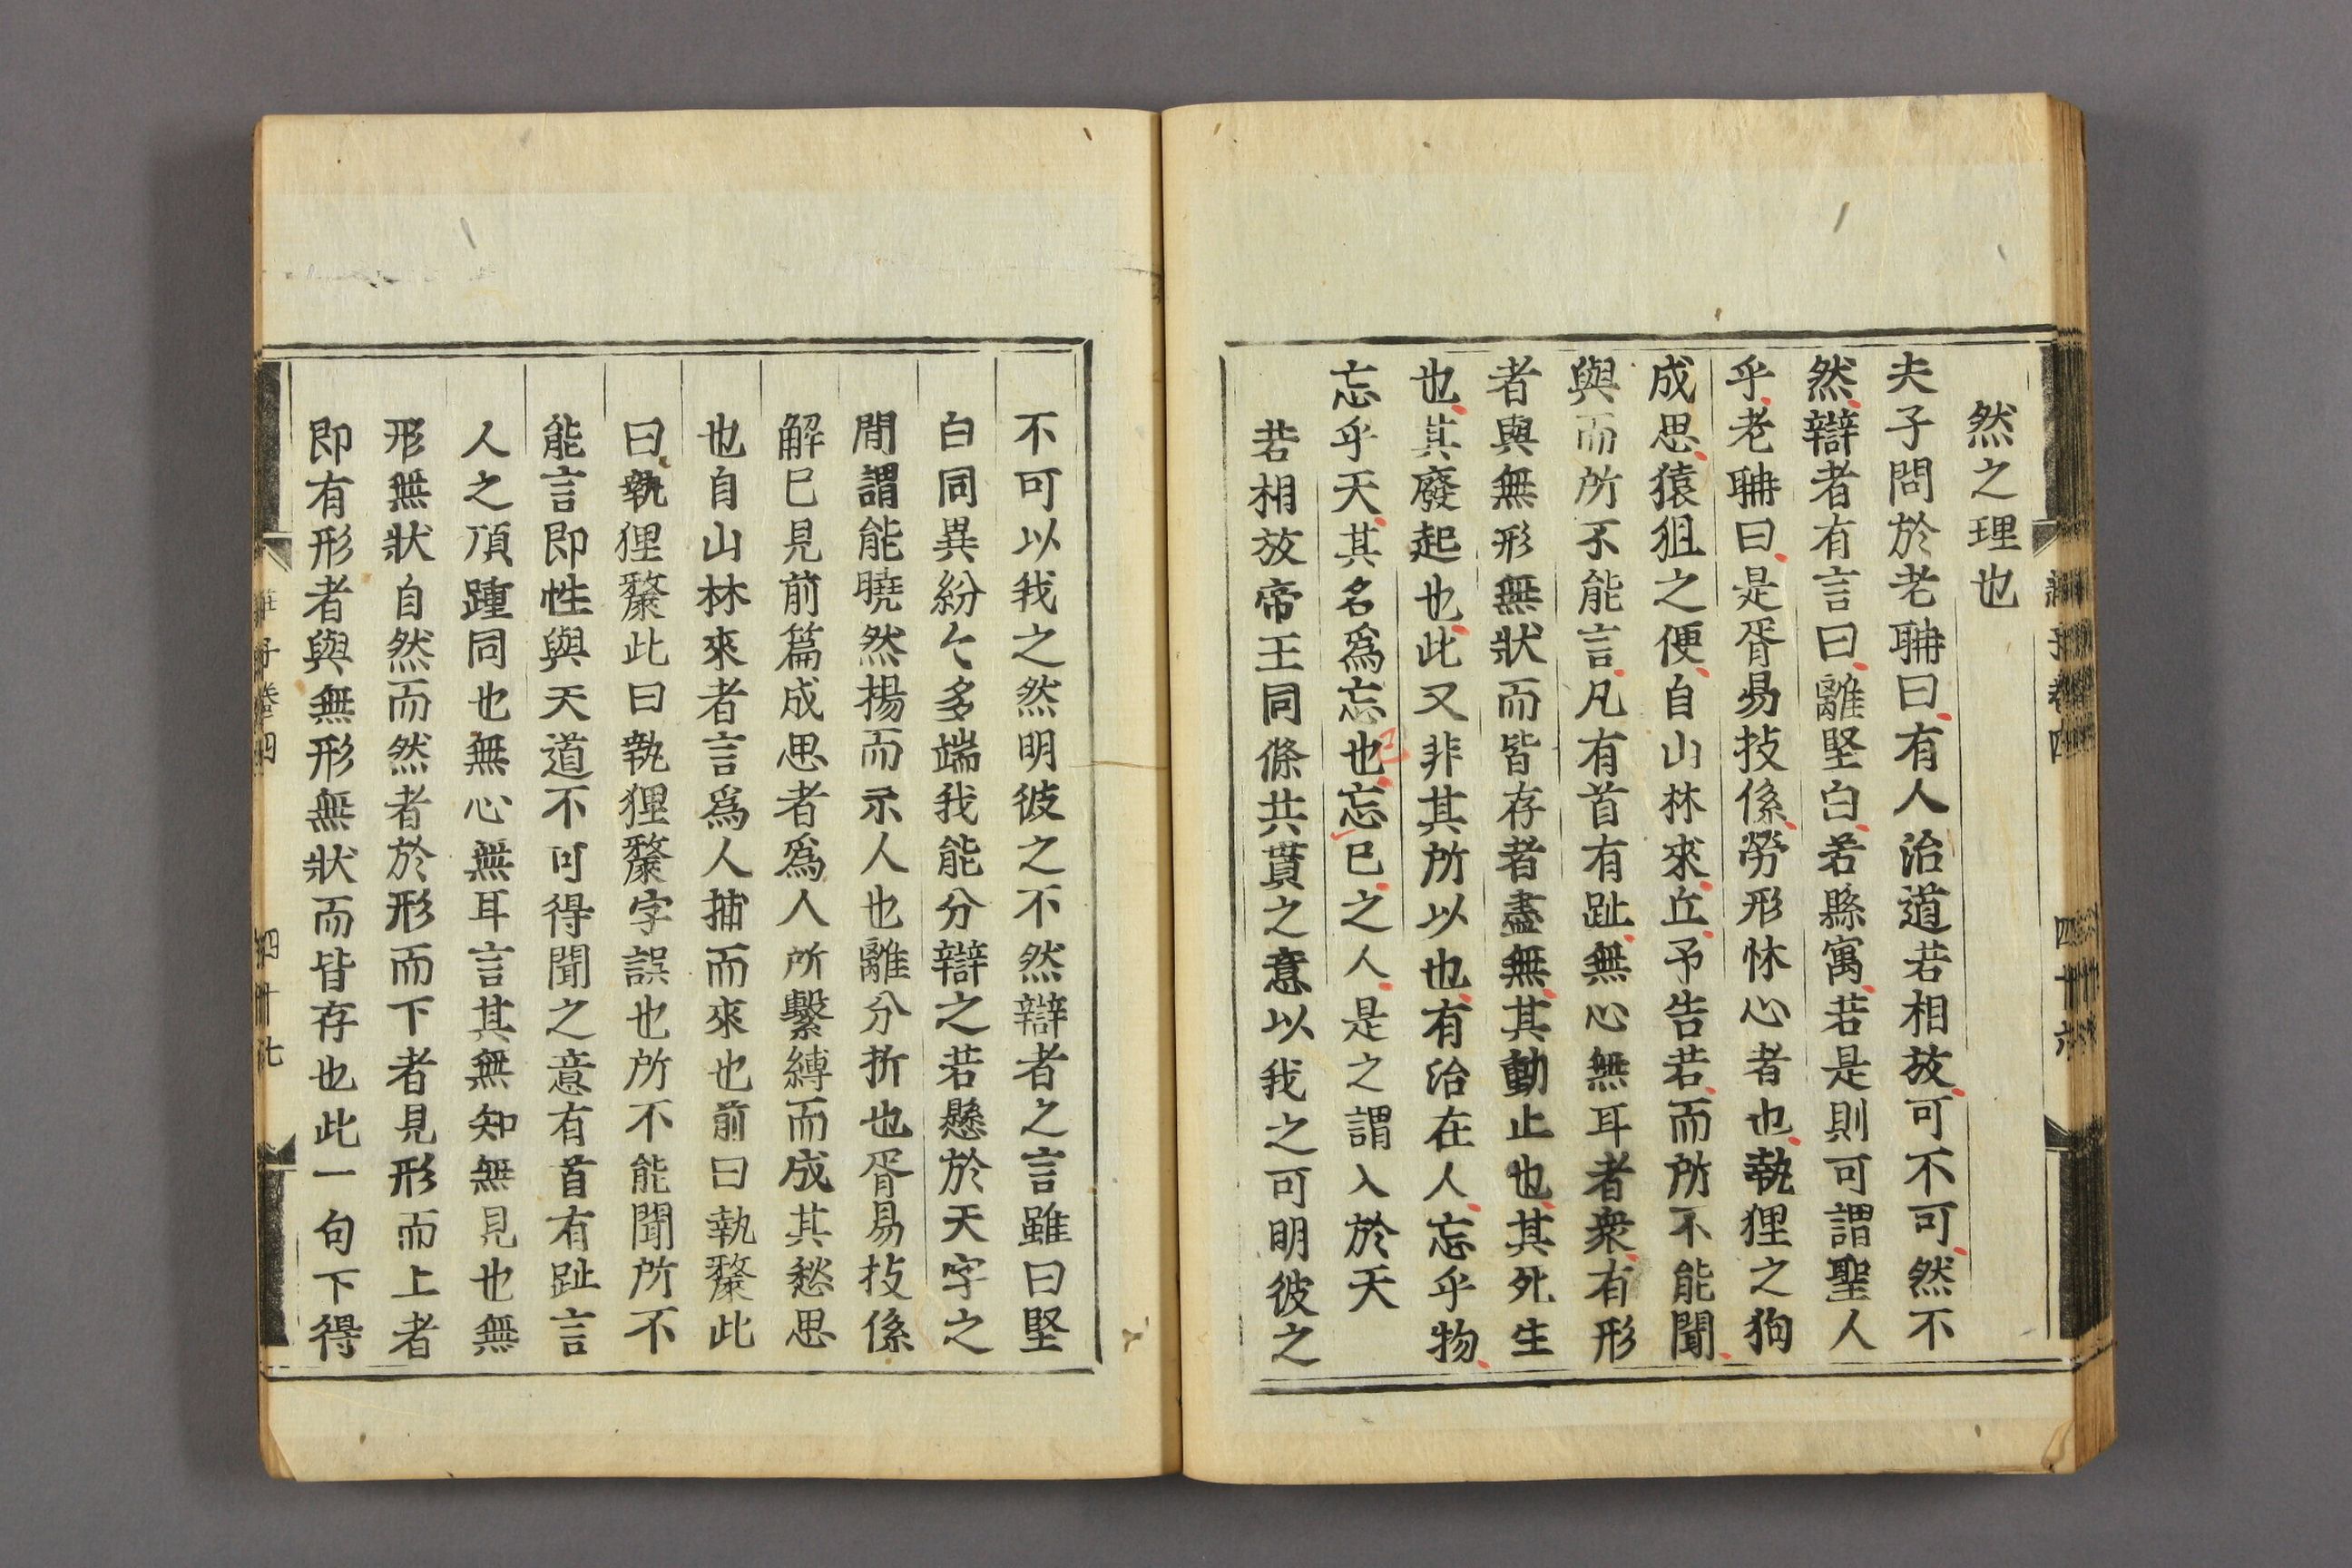 然之理也
夫子問於老聃曰有人治道若相放可不可然不
然辯者有言曰離堅白若縣寓若是則可謂聖人
乎老聃曰是胥易技係勞形怵心者也執狸之狗
成思猿狙之便自山林來丘予告若而所不能聞
與而所不能言凡有首有趾無心無耳者衆有形
者與無形無狀而皆存者盡無其動止也其死生
也其廢起也此又非其所以也有治在人忘乎物
忘乎天其名爲忘也忘已之人是之謂入於天
己
若相放帝王同條共貫之意以我之可明彼之
莊子卷四
四十六
不可以我之然明彼之不然辯者之言雖曰堅
白同異紛々多端我能分辯之若懸於天字之
間謂能曉然揚而示人也離分折也胥易技係
解已見前篇成思者爲人所繫縛而成其愁思
也自山林來者言爲人捕而來也前曰執斄此
曰執狸斄此曰執狸斄字誤也所不能聞所不
能言即性與天道不可得聞之意有首有趾言
人之頂踵同也無心無耳言其無知無見也無
形無狀自然而然者於形而下者見形而上者
即有形者與無形無狀而皆存也此一句下得
莊子卷四
四十七